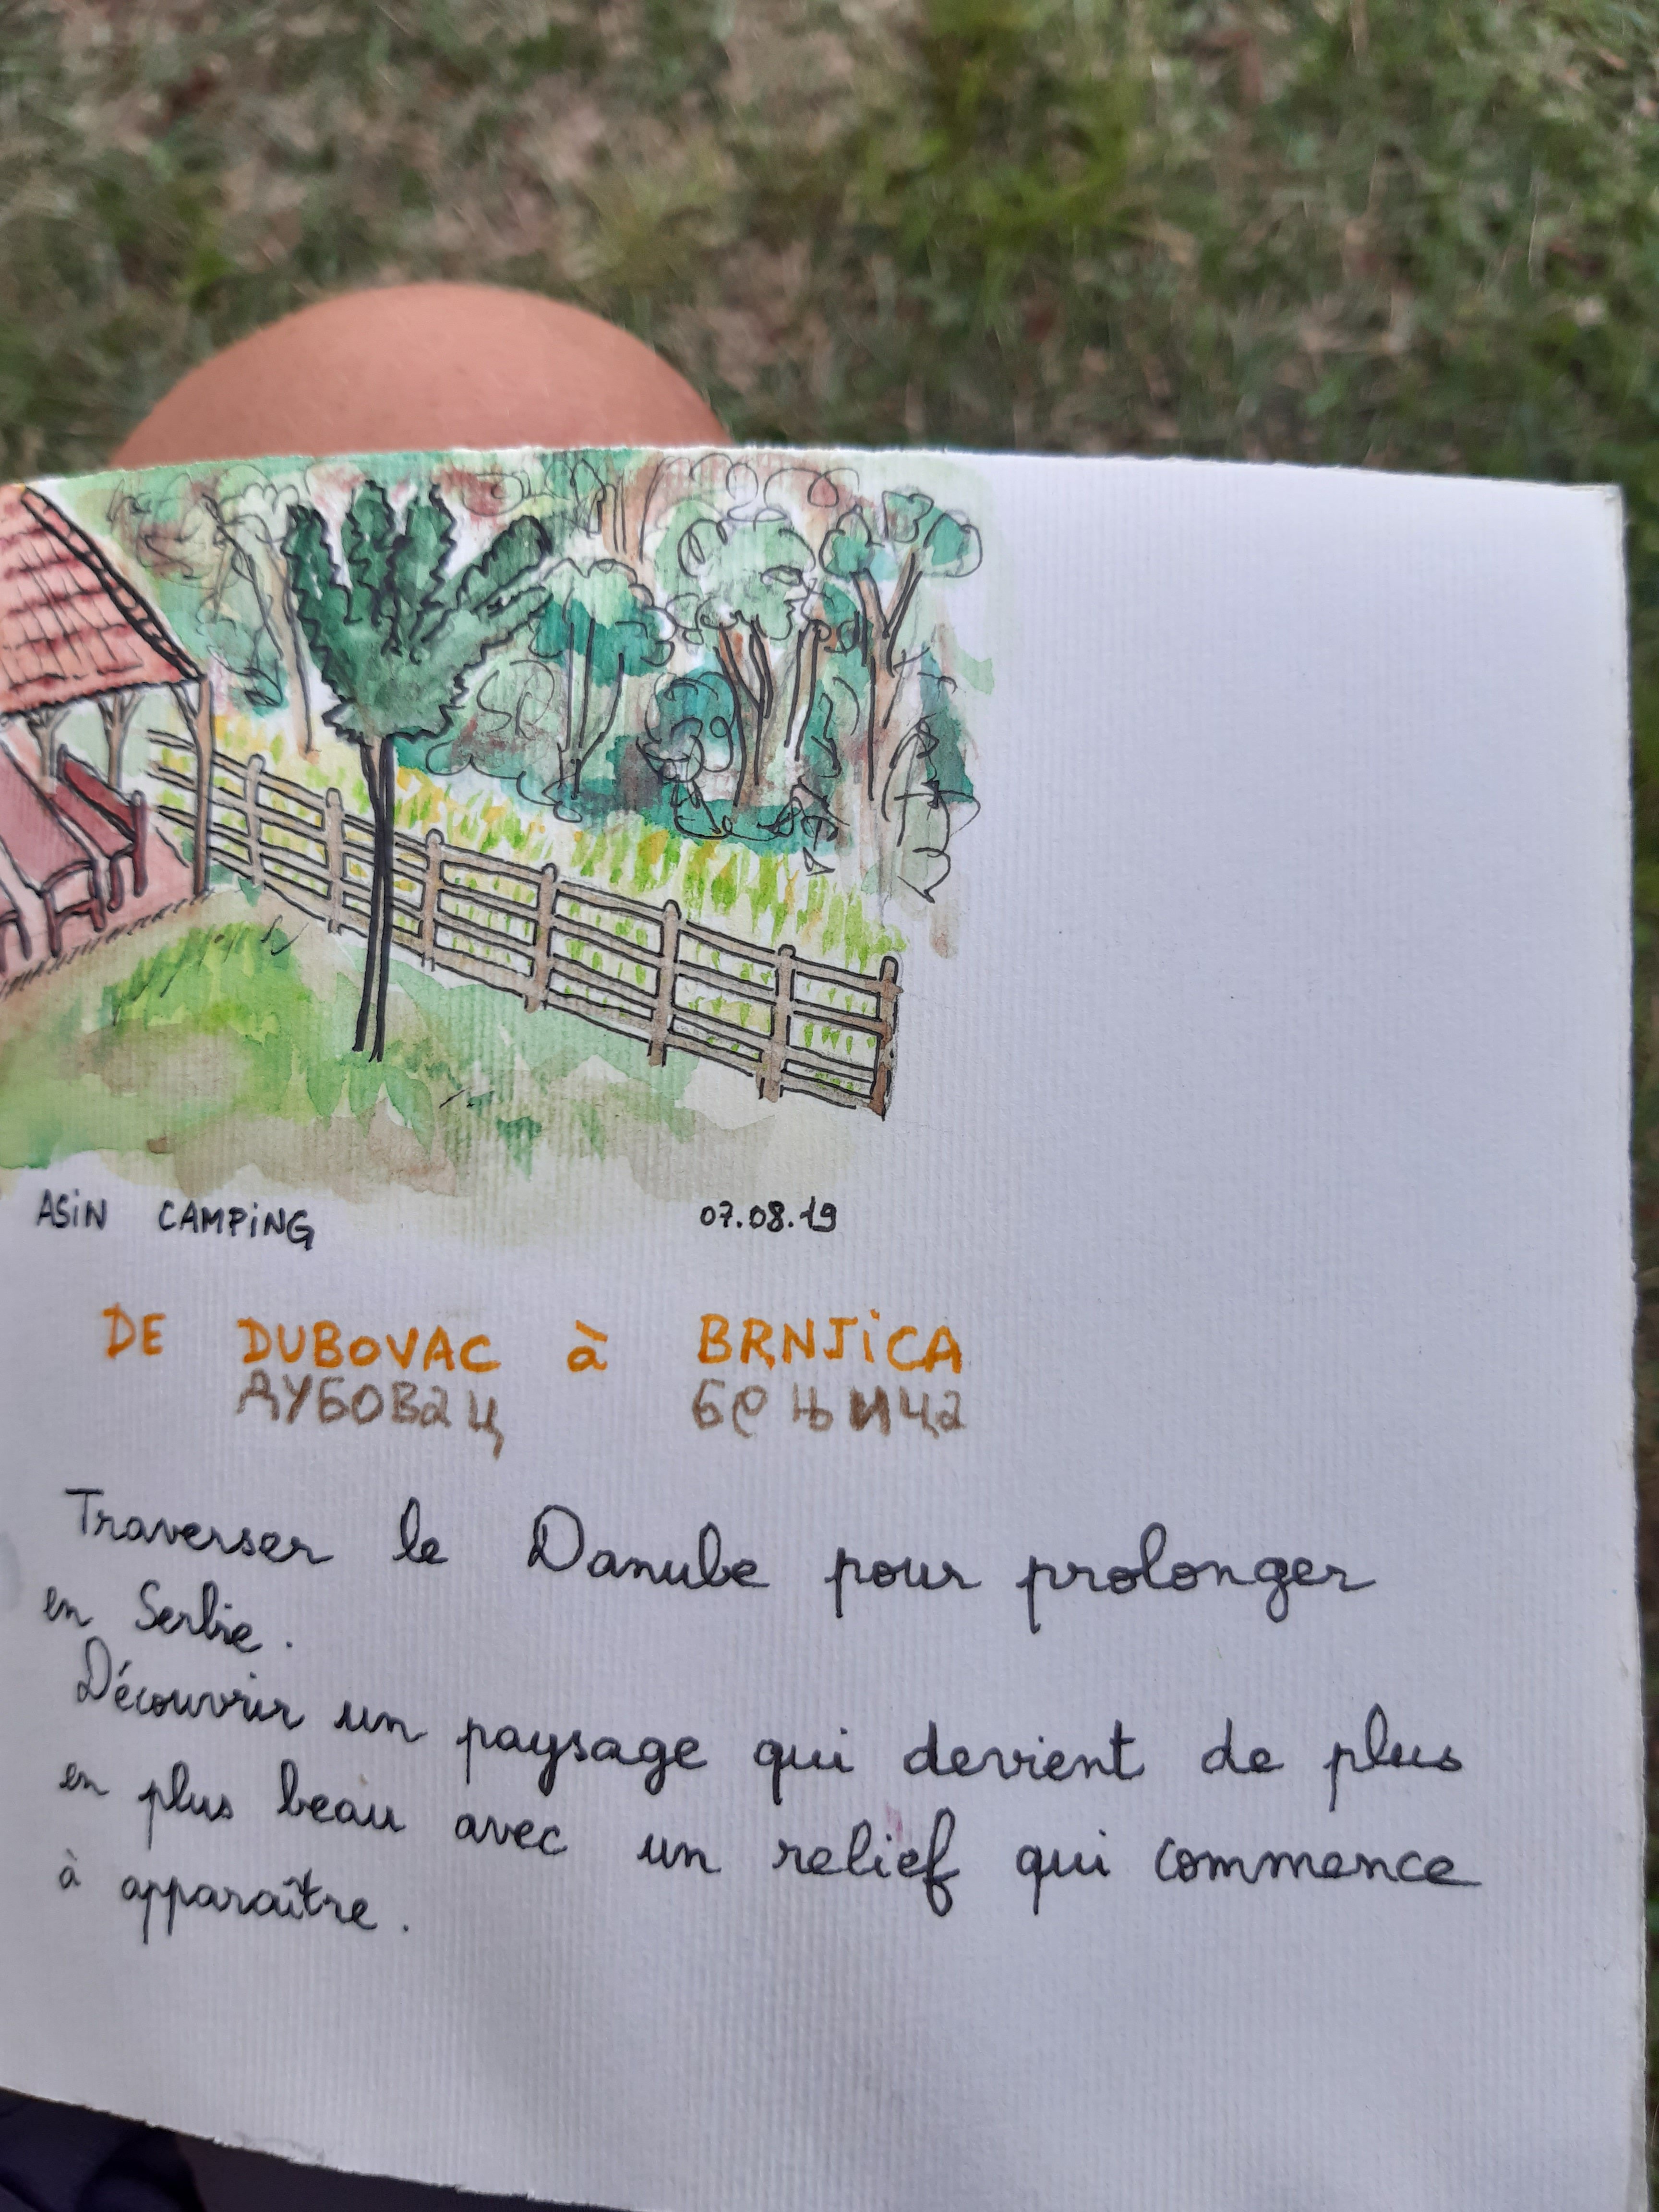 ASiN CAMPiNG 07.08.19
DE DUBOVAC à BRNJiCA
ДУБОВaЦ БРЊИЦa
Traverser le Danube pour prolonger
en Serbie.
Découvrir un paysage qui devient de plus
en plus beau avec un relief qui commence
à apparaître.